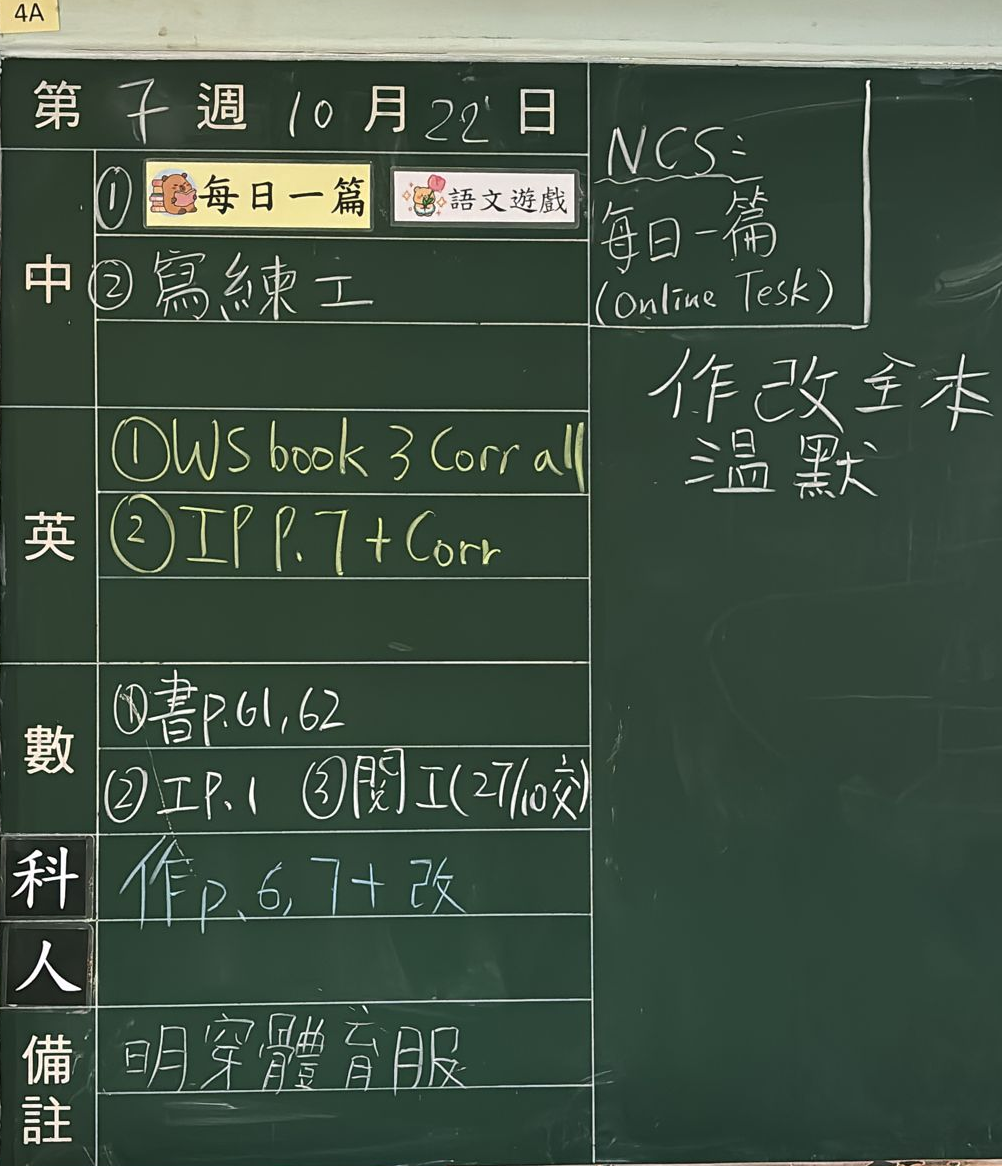 4A
第 7 週 10 月 22 日
中
① 每日一篇 語文遊戲
② 寫練工
英
① WS book 3 Corr all
② IP P.7 + Corr
數
① 書p.61, 62
② IP.1 ③ 閱工(27/10交)
科
作p.6, 7 + 改
人
備註
明穿體育服
NCS:
每日一篇
(Online Tesk)
作改全本
溫默